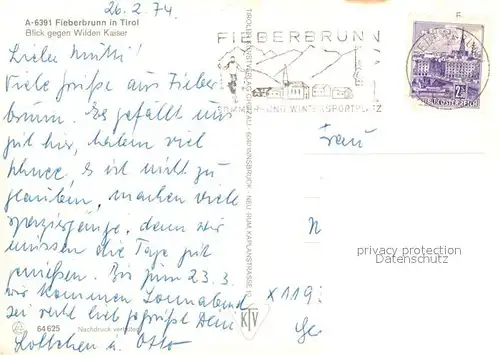 26.2.74.
A-6391 Fieberbrunn in Tirol
Blick gegen Wilden Kaiser
Liebe Mutti!
Viele Grüße aus Fieber
brunn. Es gefällt uns
gut hier, haben viel
Schnee. Es ist nicht zu
glauben, machen viele
Spaziergänge, denn wir
müssen die Tage gut
genießen. Bis zum 23.3.
wir kommen Sonnabend
sei recht lieb gegrüßt Dein
Lottchen u. Otto
64625 Nachdruck verboten
TIROLER KUNSTVERLAG CHIZZALI 6040 INNSBRUCK - NEU-RUM KAPLANSTRASSE
KTV
FIEBERBRUNN
SOMMER- UND WINTERSPORTPLATZ
REPUBLIK ÖSTERREICH
Frau
privacy protection
Datenschutz
X 119